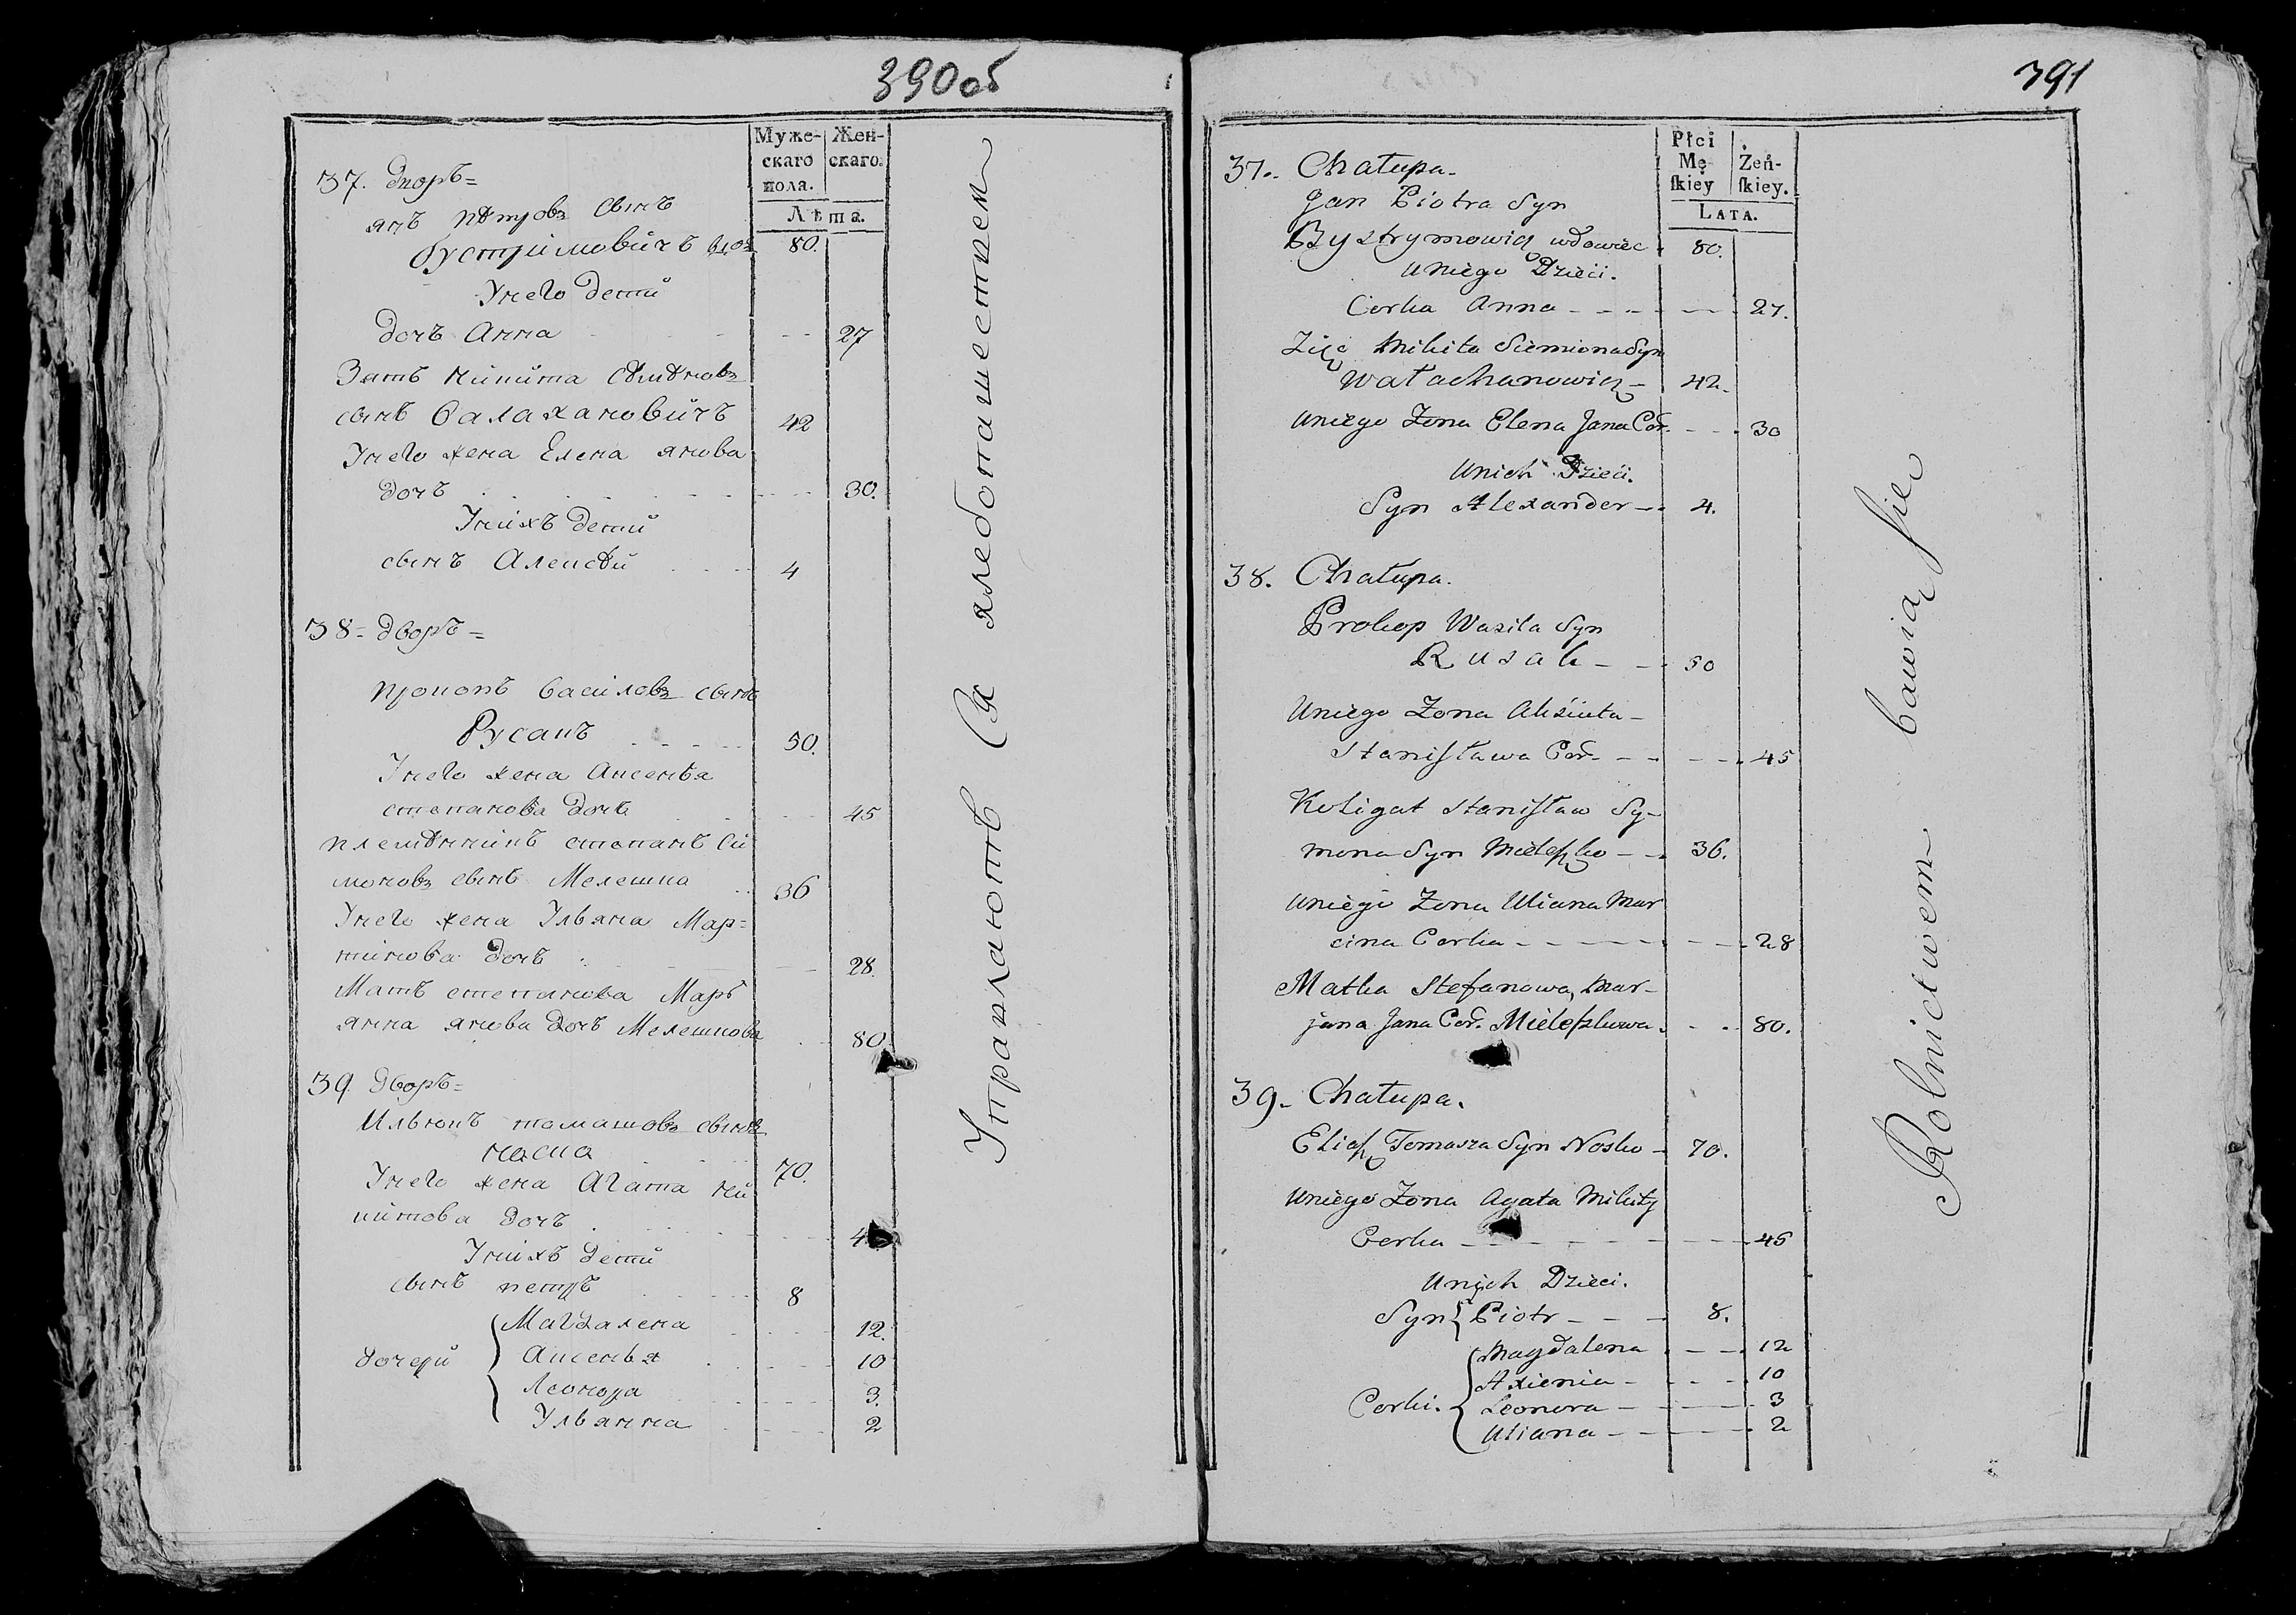 390об
Муже- Жен-
скаго скаго.
пола.
Лѣта.
37. дворъ =
янъ пѣтровъ сынъ
быстримовичъ вдов 80.
У него дети
дочь Анна 27
Зять никита сѣмѣновъ
сынъ валахановичъ 42
У него жена Елена янова
дочь 30.
У нихъ дети
сынъ Алексѣй 4
38 = дворъ =
прокопъ василовъ сынъ
Русакъ 50.
У него жена Аксенья
степанова дочь 45
племѣнникъ степанъ си
моновъ сынъ Мелешка 36
У него жена Ульяна Мар=
тинова дочь 28.
Мать степанова Марь
янна янова дочь Мелешкова 80.
39 дворъ =
Ильюкъ томашовъ сынъ
носко 70.
У него жена Агата ни
китова дочь 4
У нихъ дети
сынъ петръ 8
Магдалена 12.
дочери Аксенья 10
Леонора 3.
Ульянна 2
Упражляютъ ся хлебопашествем
391
Płci
Mę- Żeń-
ſkiey ſkiey.
LATA.
37. Chałupa.
Jan Piotra Syn
Bystrymowicz wdowiec 80.
U niego Dzieci.
Corka Anna 27.
Zięć Mikita Siemiona Syn
Wałachanowicz 42.
U niego Żona Elena Jana Cor. 30
U nich Dzieci.
Syn Alexander 4.
38. Chałupa.
Prokop Wasila Syn
Rusak 50
U niego Żona Aksiuta
Stanisława Cor. 45
Koligat Stanisław Sy-
mona Syn Mieleszko 36.
U niego Żona Uliana Mar
cina Corka 28
Matka Stefanowa, Mar-
jana Jana Cor. Mieleszkowa 80.
39. Chałupa.
Eliasz Tomasza Syn Nosko 70.
U niego Żona Agata Mikity
Corka 45
U nich Dzieci.
Syn Piotr 8.
Magdalena 12
Axienia 10
Corki. Leonora 3
Uliana 2
Rolnictwem bawią się